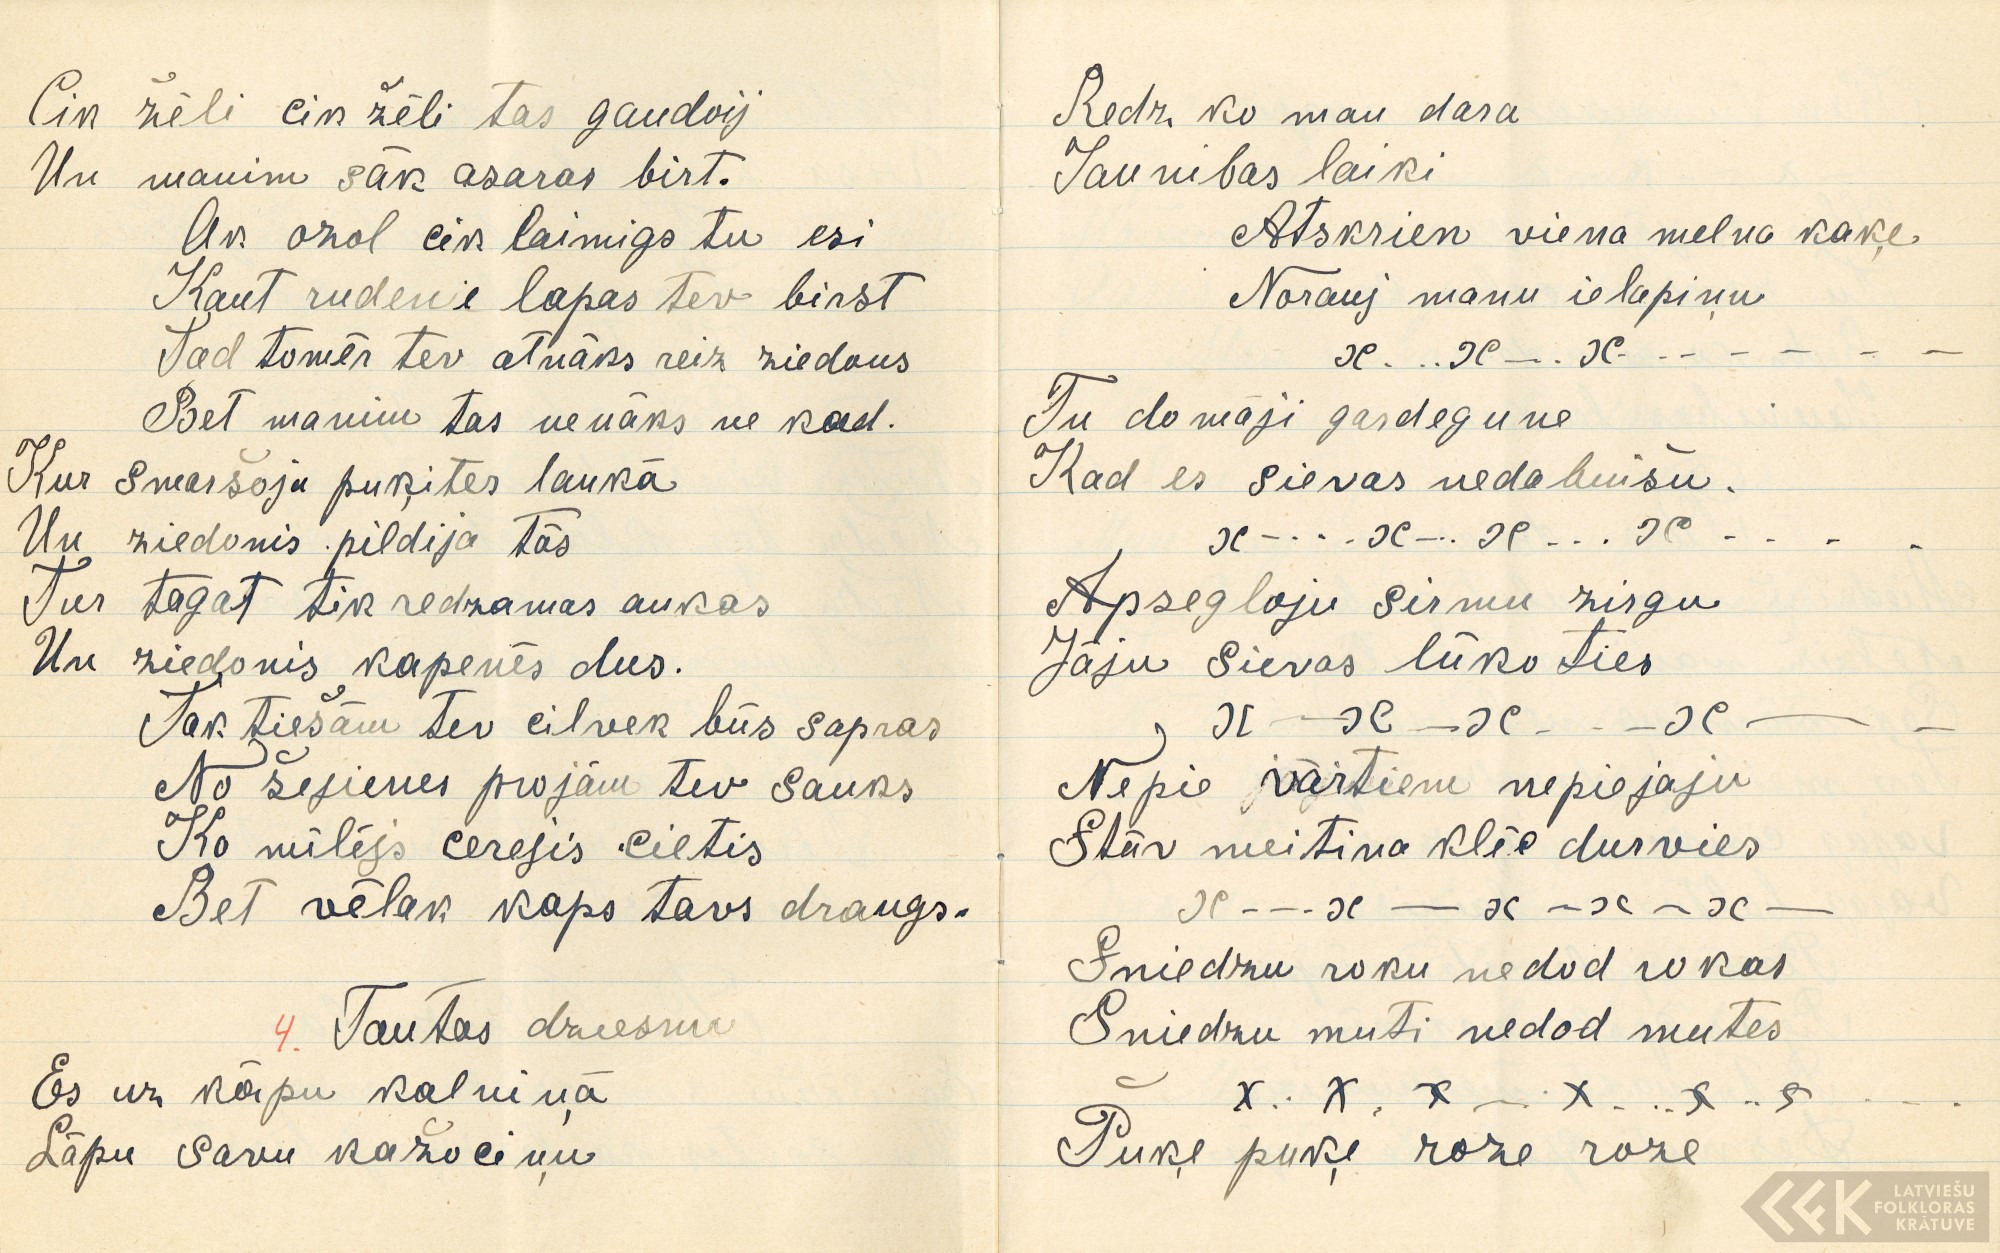 Cik žēli cik žēli tas gaudoij
Un manim sāk asaras birt.
Ak ozol cik laimigs tu esi
Kaut rudenie lapas tev birst
Tad tomēr tev atnāks reiz ziedons
Bet manim tas nenāks ne kad.
Kur smaršoja puķites laukā
Un ziedonis pildija tās
Tur tagat tik redzamas aukas
Un ziedonis kapenēs dus.
Tak tiešām tev cilvek būs sapras
No šejienes projām tev sauks
Ko mīlējs cerejis cietis
Bet vēlak kaps tavs draugs.
4. Tautas dziesma
Es uz kāpu kalniņā
Lāpu savu kažociņu
Redz ko man dara
Jaunibas laiki
Atskrien viena melna kaķe
Norauj manu ielapiņu
x...x-..x.------
Tu domāji gardegune
Kad es sievas nedabuišu.
x-...x-..x...x----
Apsegloju sirmu zirgu
Jāju sievas lūkoties
x—x—x---x——
Nepie vārtiem nepiejaju
Stāv meitina klēe durvies
x---x—x-x-x—
Sniedzu roku nedod rokas
Sniedzu muti nedod mutes
x..x.x—.x...x..x...
Puķe puķe roze roze
LATVIEŠU
FOLKLORAS
KRĀTUVE